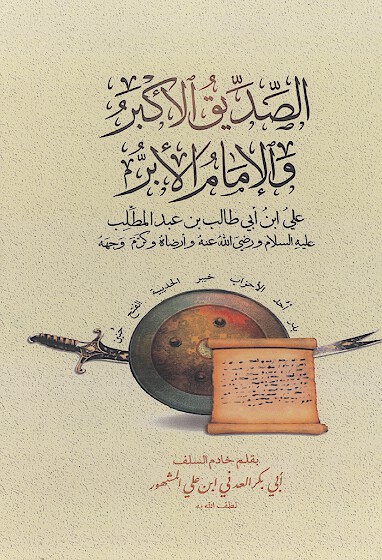 الصِّدِّيقُ الأَكْبَرُ
وَالإِمَامُ الأَبَرُّ
عليُ ابنُ أبي طالب بن عبد المطَّلِب
عليه السلام ورضي اللهُ عنهُ وأرضاهُ وكرّم وجهه
بدر أحد الأحزاب خيبر الحديبية الفتح حنين
بقلم خادم السلف
أبي بكر العدني ابن علي المشهور
لطف الله به